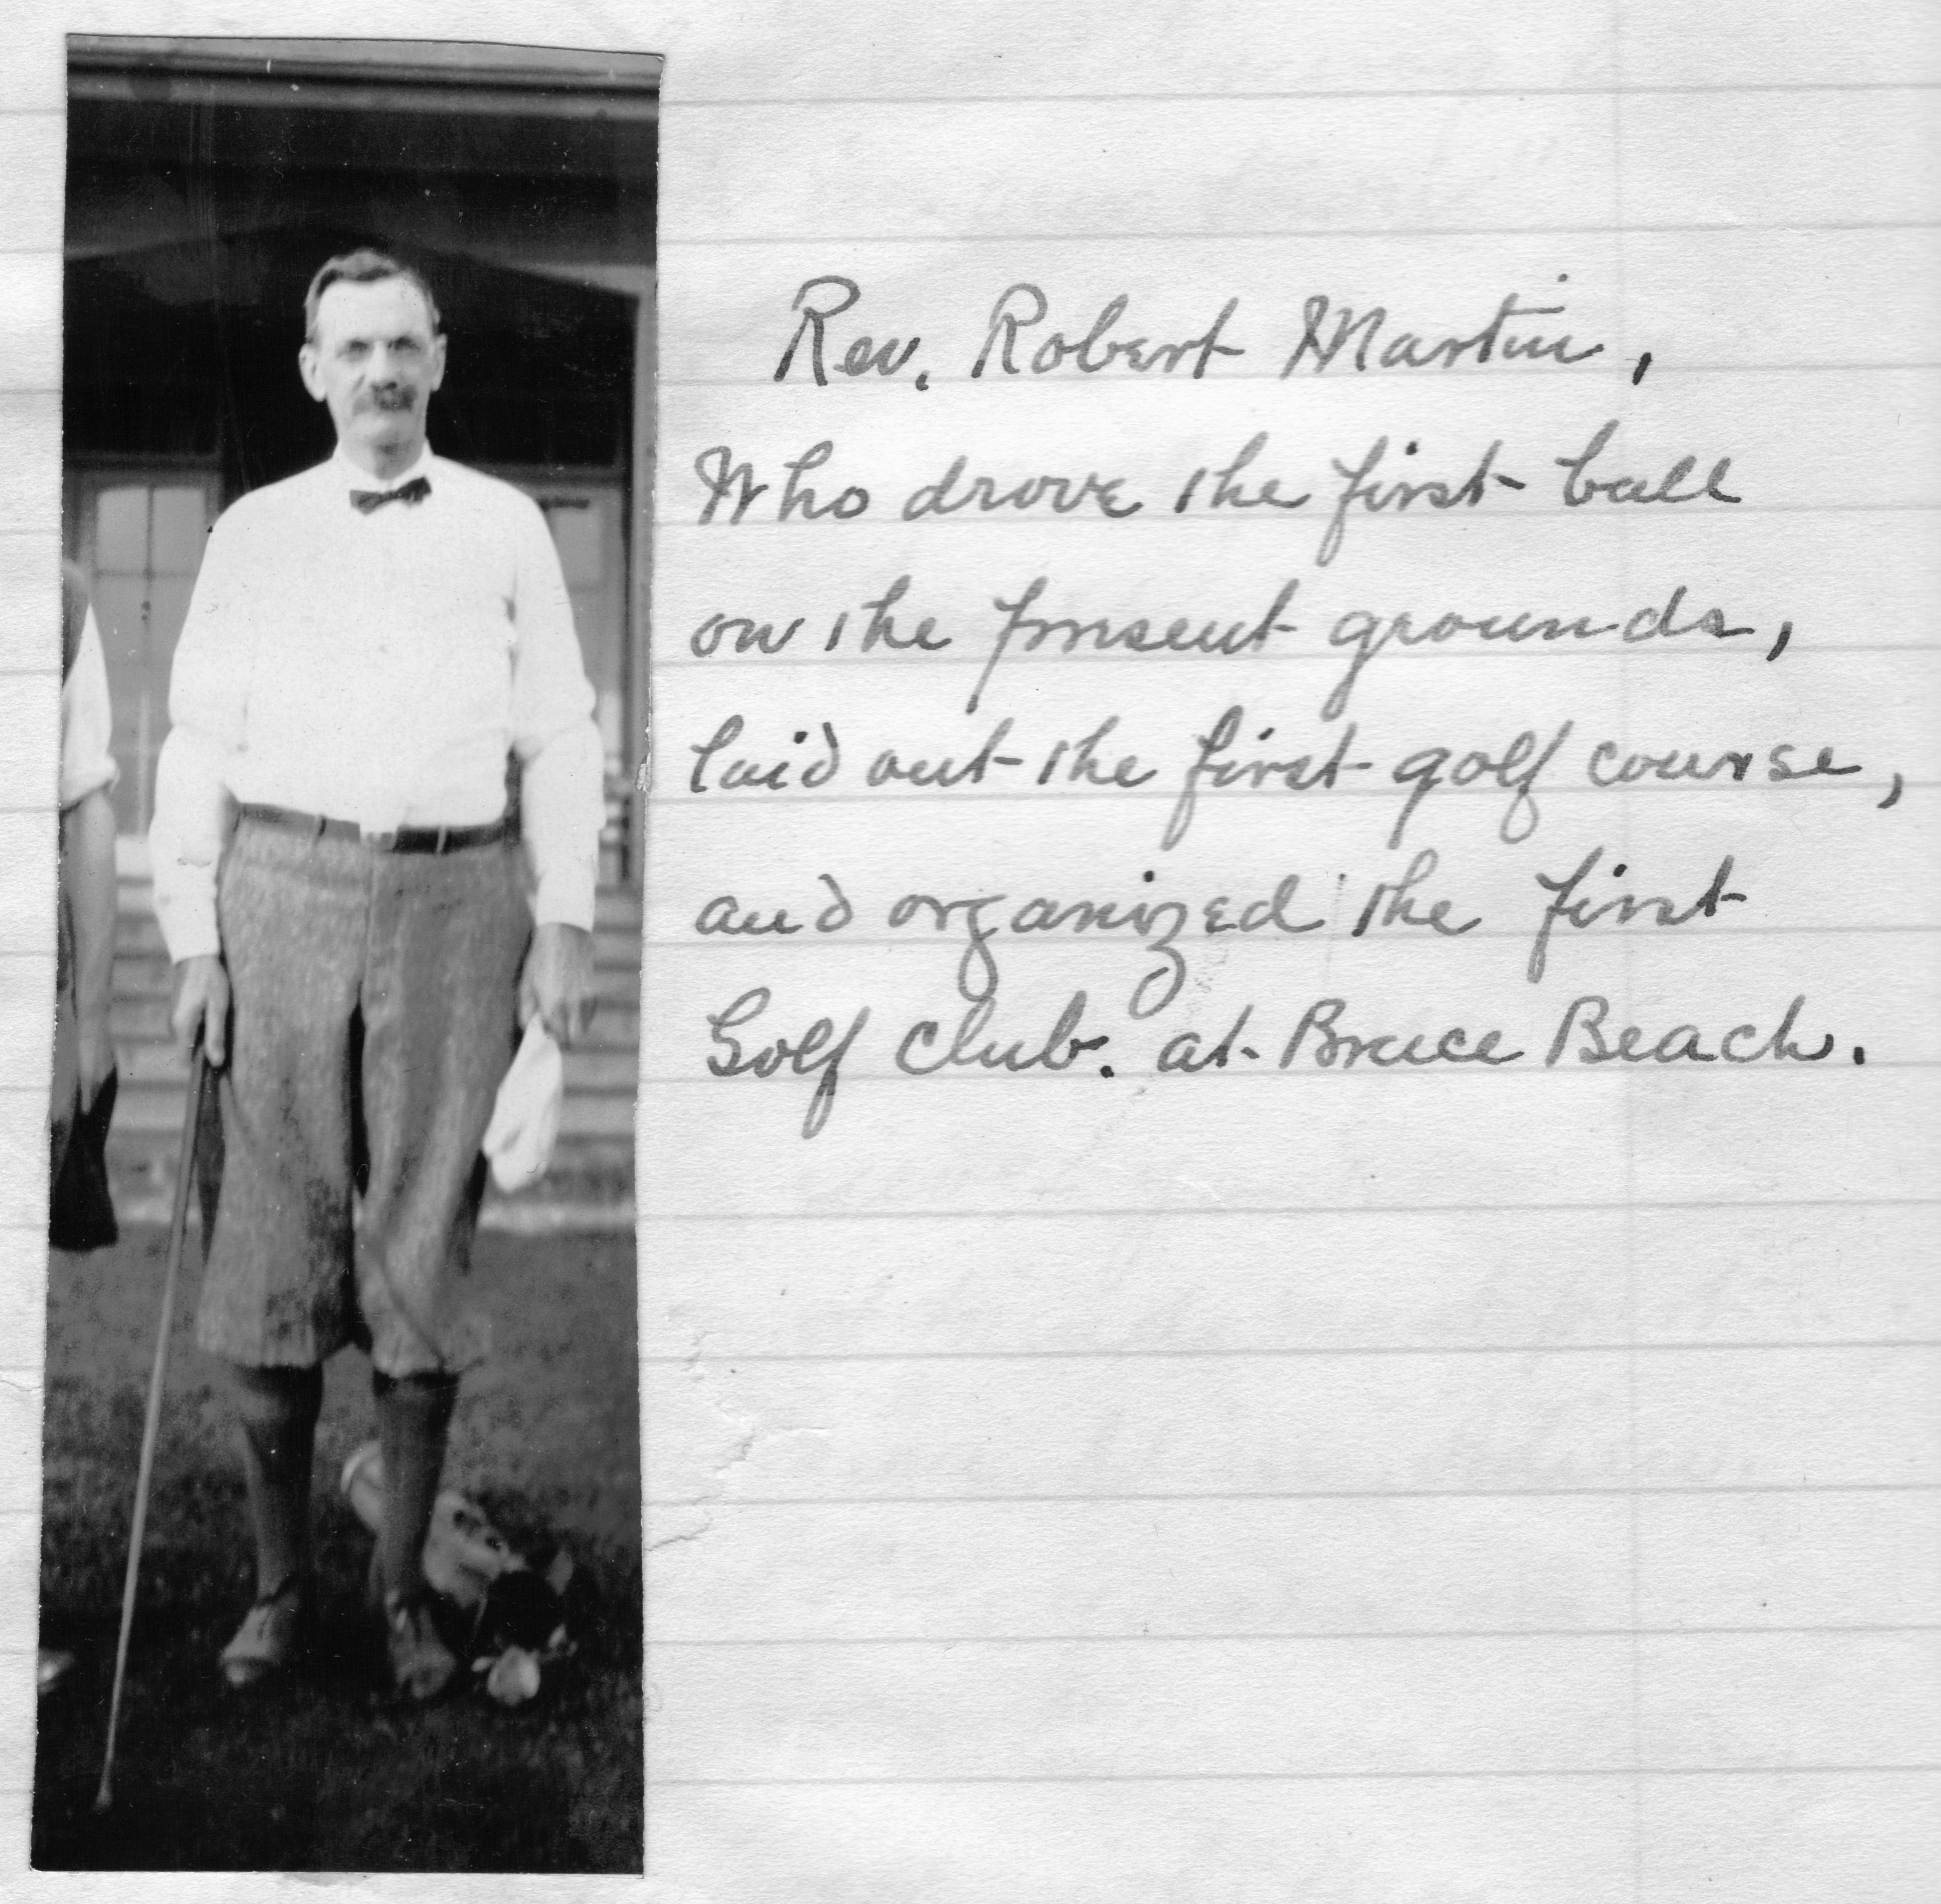 Rev. Robert Martin,
Who drove the first ball
on the present grounds,
laid out the first golf course,
and organized the first
Golf Club. at Bruce Beach.